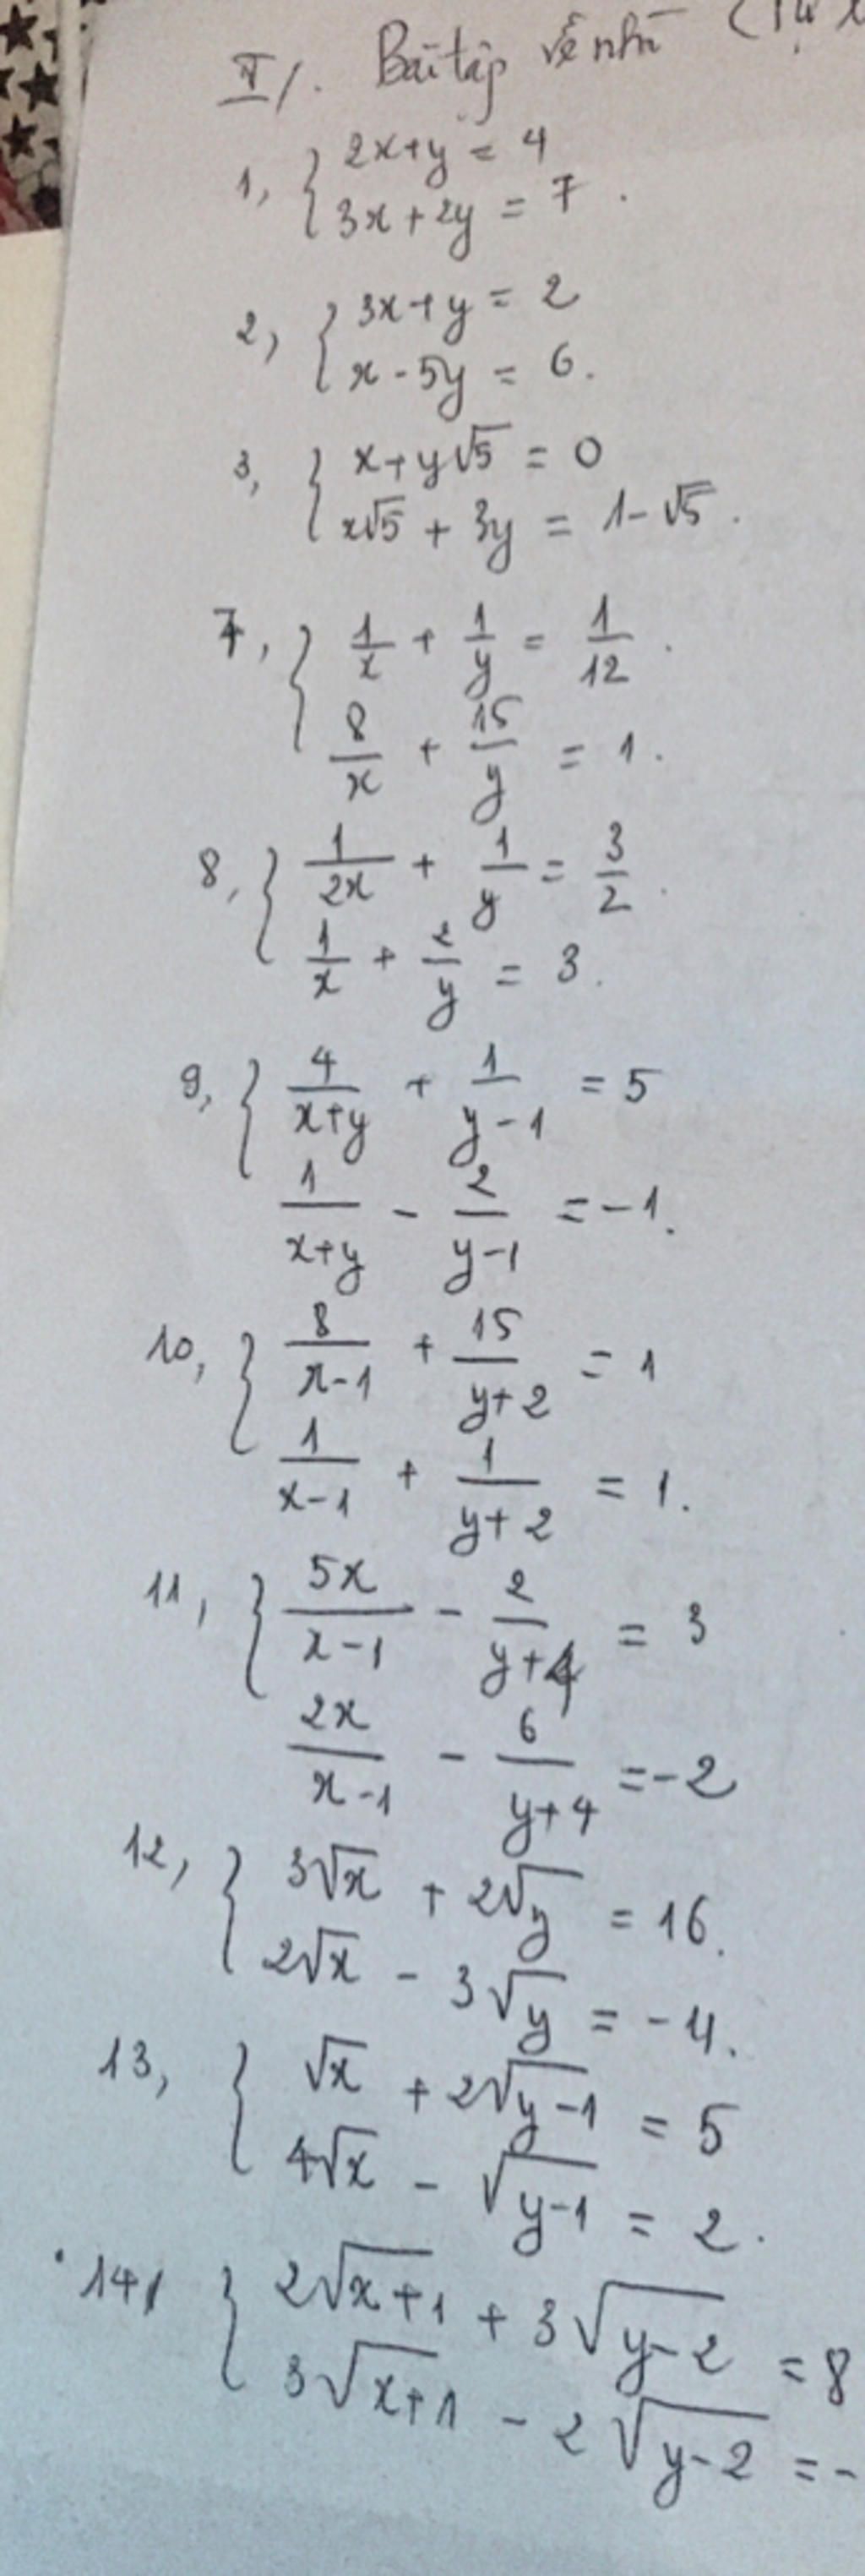 II/. Bài tập về nhà (Tự
1, { 2x+y = 4
3x+2y = 7.
2, { 3x+y = 2
x-5y = 6.
3, { x+y√5 = 0
x√5 + 3y = 1-√5.
7, { 1/x + 1/y = 1/12.
8/x + 15/y = 1.
8, { 1/2x + 1/y = 3/2.
1/x + 2/y = 3.
9, { 4/(x+y) + 1/(y-1) = 5
1/(x+y) - 2/(y-1) = -1.
10, { 8/(x-1) + 15/(y+2) = 1
1/(x-1) + 1/(y+2) = 1.
11, { 5x/(x-1) - 2/(y+4) = 3
2x/(x-1) - 6/(y+4) = -2
12, { 3√x + 2√y = 16.
2√x - 3√y = -4.
13, { √x + 2√(y-1) = 5
4√x - √(y-1) = 2.
14, { 2√(x+1) + 3√(y-2) = 8
3√(x+1) - 2√(y-2) = -